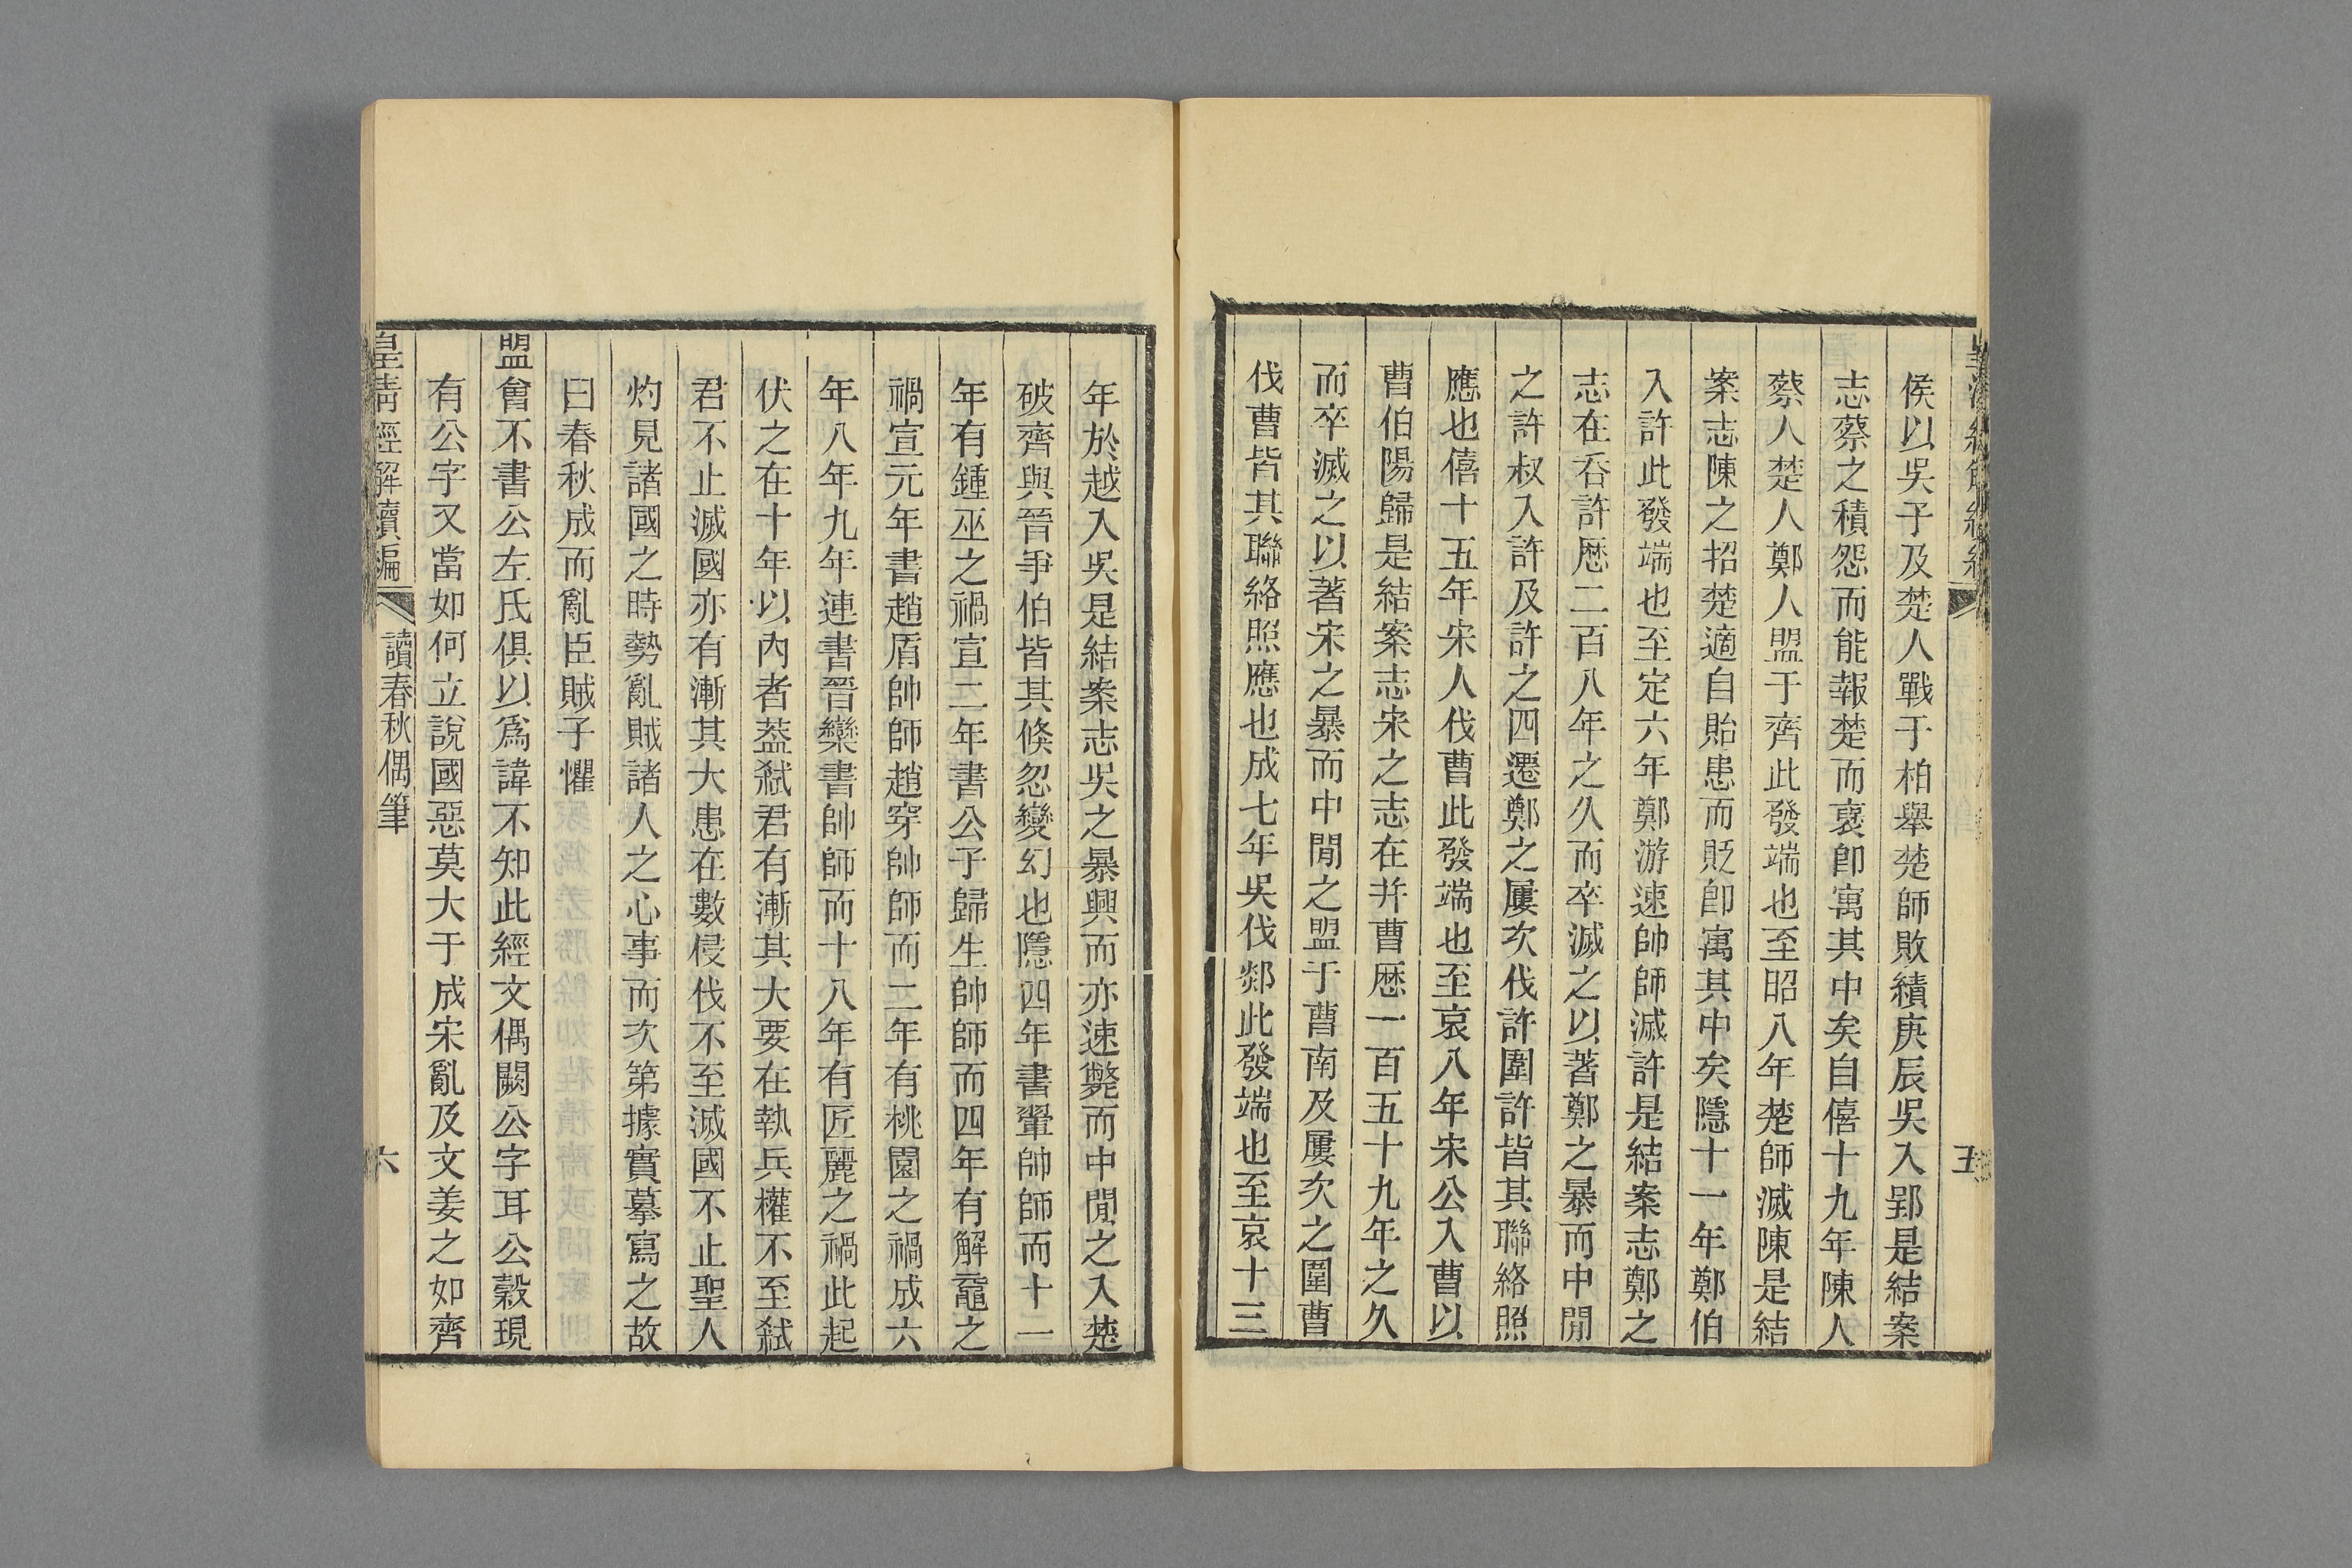 侯以吳子及楚人戰于柏舉楚師敗績庚辰吳入郢是結案
志蔡之積怨而能報楚而裦卽寓其中矣自僖十九年陳人
蔡人楚人鄭人盟于齊此發端也至昭八年楚師滅陳是結
案志陳之招楚適自貽患而貶卽寓其中矣隱十一年鄭伯
入許此發端也至定六年鄭游速帥師滅許是結案志鄭之
志在吞許歷二百八年之久而卒滅之以著鄭之暴而中閒
之許叔入許及許之四遷鄭之屢次伐許圍許皆其聯絡照
應也僖十五年宋人伐曹此發端也至哀八年宋公入曹以
曹伯陽歸是結案志宋之志在幷曹歷一百五十九年之久
而卒滅之以著宋之暴而中閒之盟于曹南及屢次之圍曹
伐曹皆其聯絡照應也成七年吳伐郯此發端也至哀十三
年於越入吳是結案志吳之暴興而亦速斃而中閒之入楚
破齊與晉爭伯皆其倐忽變幻也隱四年書翬帥師而十一
年有鍾巫之禍宣二年書公子歸生帥師而四年有解黿之
禍宣元年書趙盾帥師趙穿帥師而二年有桃園之禍成六
年八年九年連書晉欒書帥師而十八年有匠麗之禍此起
伏之在十年以內者葢弑君有漸其大要在執兵權不至弑
君不止滅國亦有漸其大患在數侵伐不至滅國不止聖人
灼見諸國之時勢亂賊諸人之心事而次第據實摹寫之故
曰春秋成而亂臣賊子懼
盟會不書公左氏俱以爲諱不知此經文偶闕公字耳公穀現
有公字又當如何立說國惡莫大于成宋亂及文姜之如齊
皇清經解續編
讀春秋偶筆
六